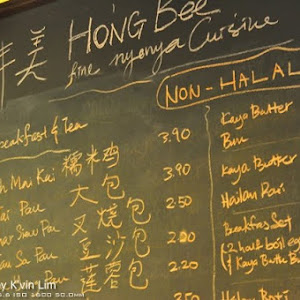 美 HONG BEE
fine nyonya Cuisine
NON-HALAL
eakfast & Tea
Mai Kai 糯米鸡 3.90
ai Pau 大包 3.90
Siew Pau 叉烧包 2.50
Sa Pau 豆沙包 2.20
Pau 莲蓉包 2.20
Kaya Butter
Bun
Kaya Butter
Hailan Roti
Breakfast Set
(2 half boil egg
Kaya Butter Bu
y K'vin Lim
5.6 ISO 1600 50.0mm